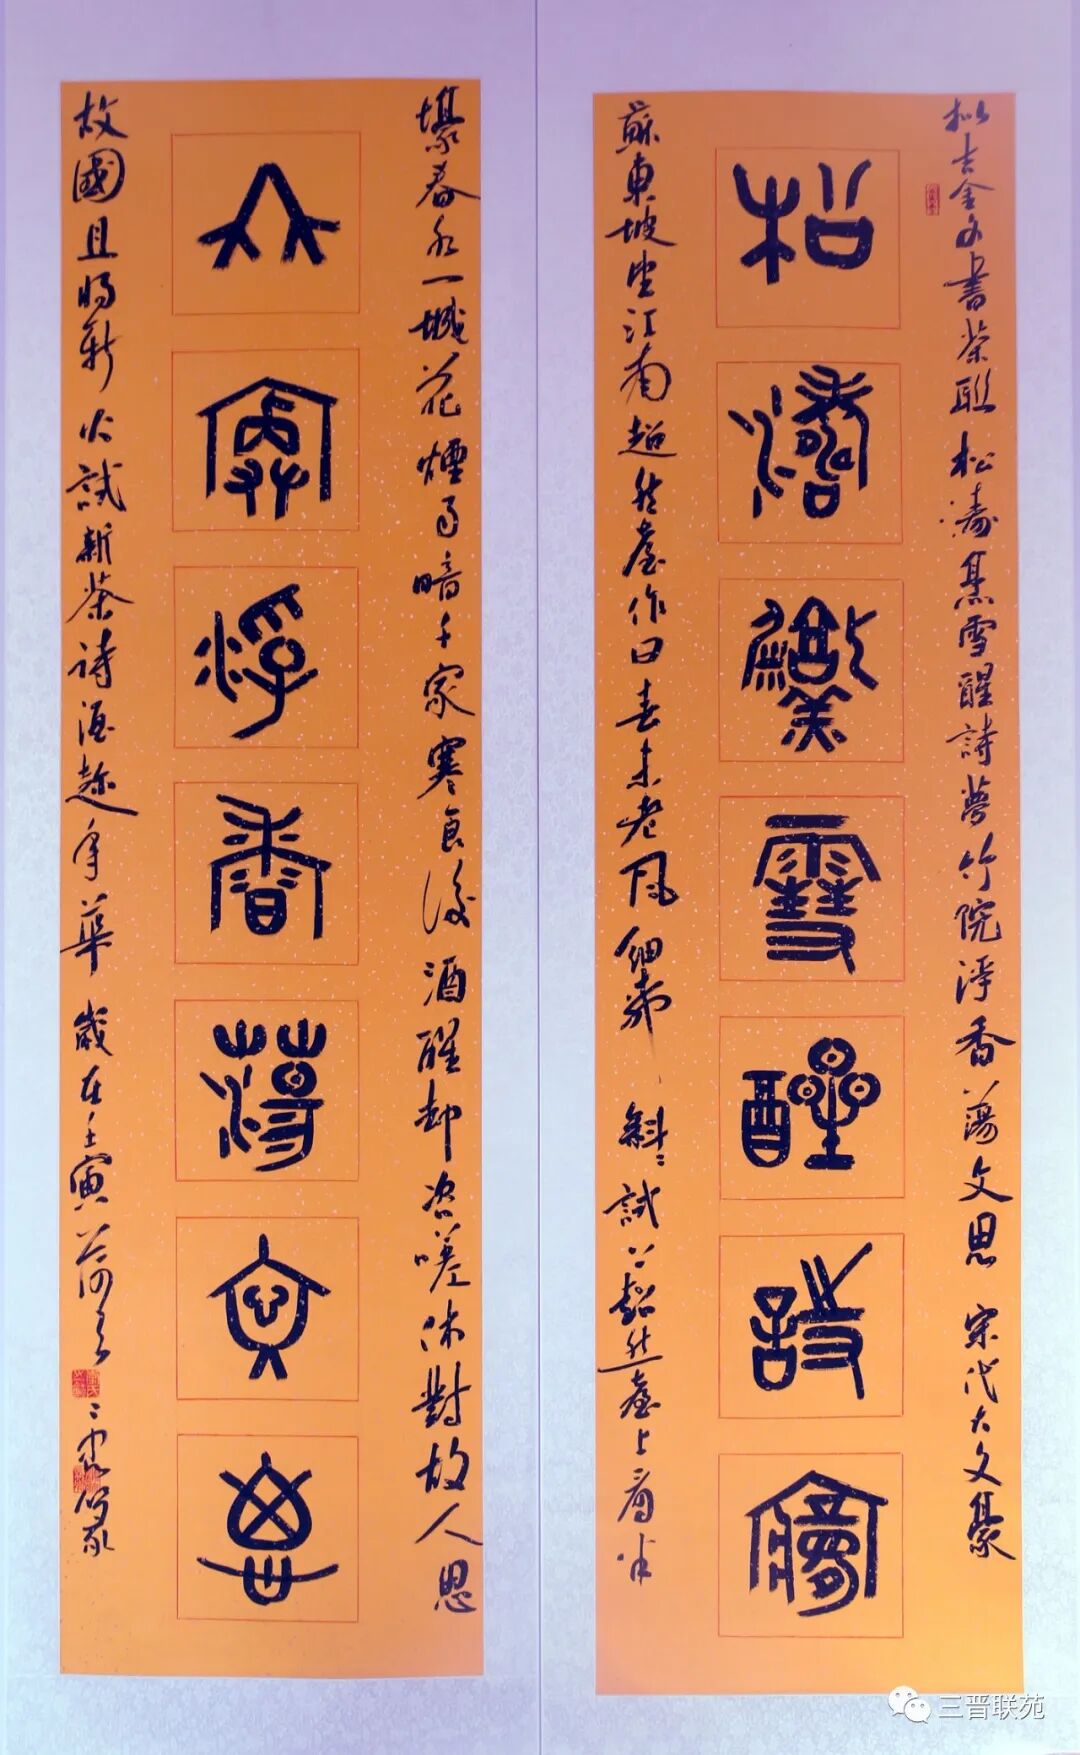 拟吉金文書茶联 松濤烹雪醒詩夢 竹院浮香蕩文思 宋代大文豪
松濤烹雪醒詩夢
蘇東坡望江南超然臺作曰春未老風細柳斜〻試上超然臺上看半
壕春水一城花煙雨暗千家寒食後酒醒却咨嗟休對故人思
竹院浮香蕩文思
故國且將新火試新茶詩酒趁年華 歲在壬寅荷月
三晋联苑